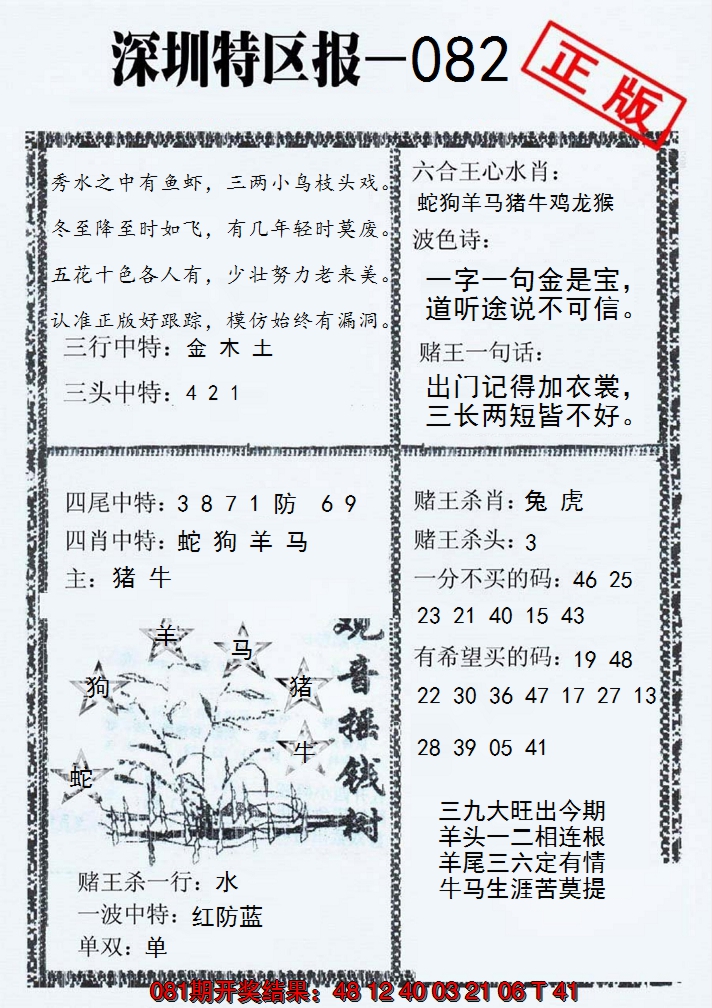 深圳特区报—082
正版
秀水之中有鱼虾，三两小鸟枝头戏。
冬至降至时如飞，有几年轻时莫废。
五花十色各人有，少壮努力老来美。
认准正版好跟踪，模仿始终有漏洞。
三行中特：金 木 土
三头中特：4 2 1
六合王心水肖：
蛇狗羊马猪牛鸡龙猴
波色诗：
一字一句金是宝，
道听途说不可信。
赌王一句话：
出门记得加衣裳，
三长两短皆不好。
四尾中特：3 8 7 1 防 6 9
四肖中特：蛇 狗 羊 马
主：猪 牛
羊
马
狗
猪
牛
蛇
观音摇钱树
赌王杀一行：水
一波中特：红防蓝
单双：单
赌王杀肖：兔 虎
赌王杀头：3
一分不买的码：46 25
23 21 40 15 43
有希望买的码：19 48
22 30 36 47 17 27 13
28 39 05 41
三九大旺出今期
羊头一二相连根
羊尾三六定有情
牛马生涯苦莫提
081期开奖结果：48 12 40 03 21 06 T 41